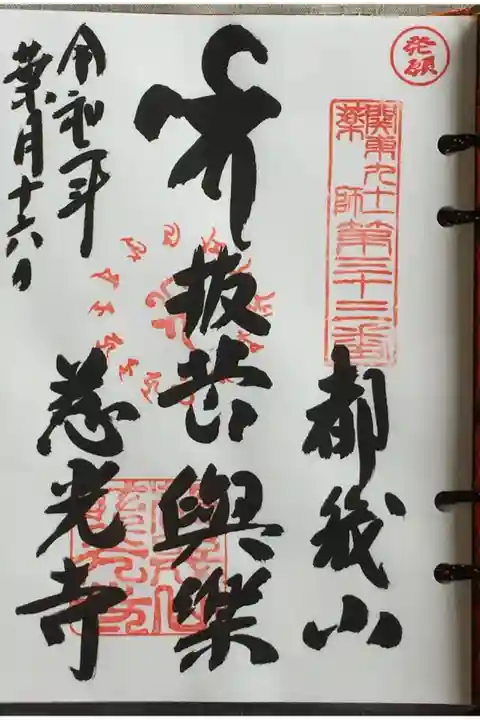 発願
関東九十一
薬師第三十二番
都幾山
抜苦與楽
慈光寺
令和元年
葉月十六日